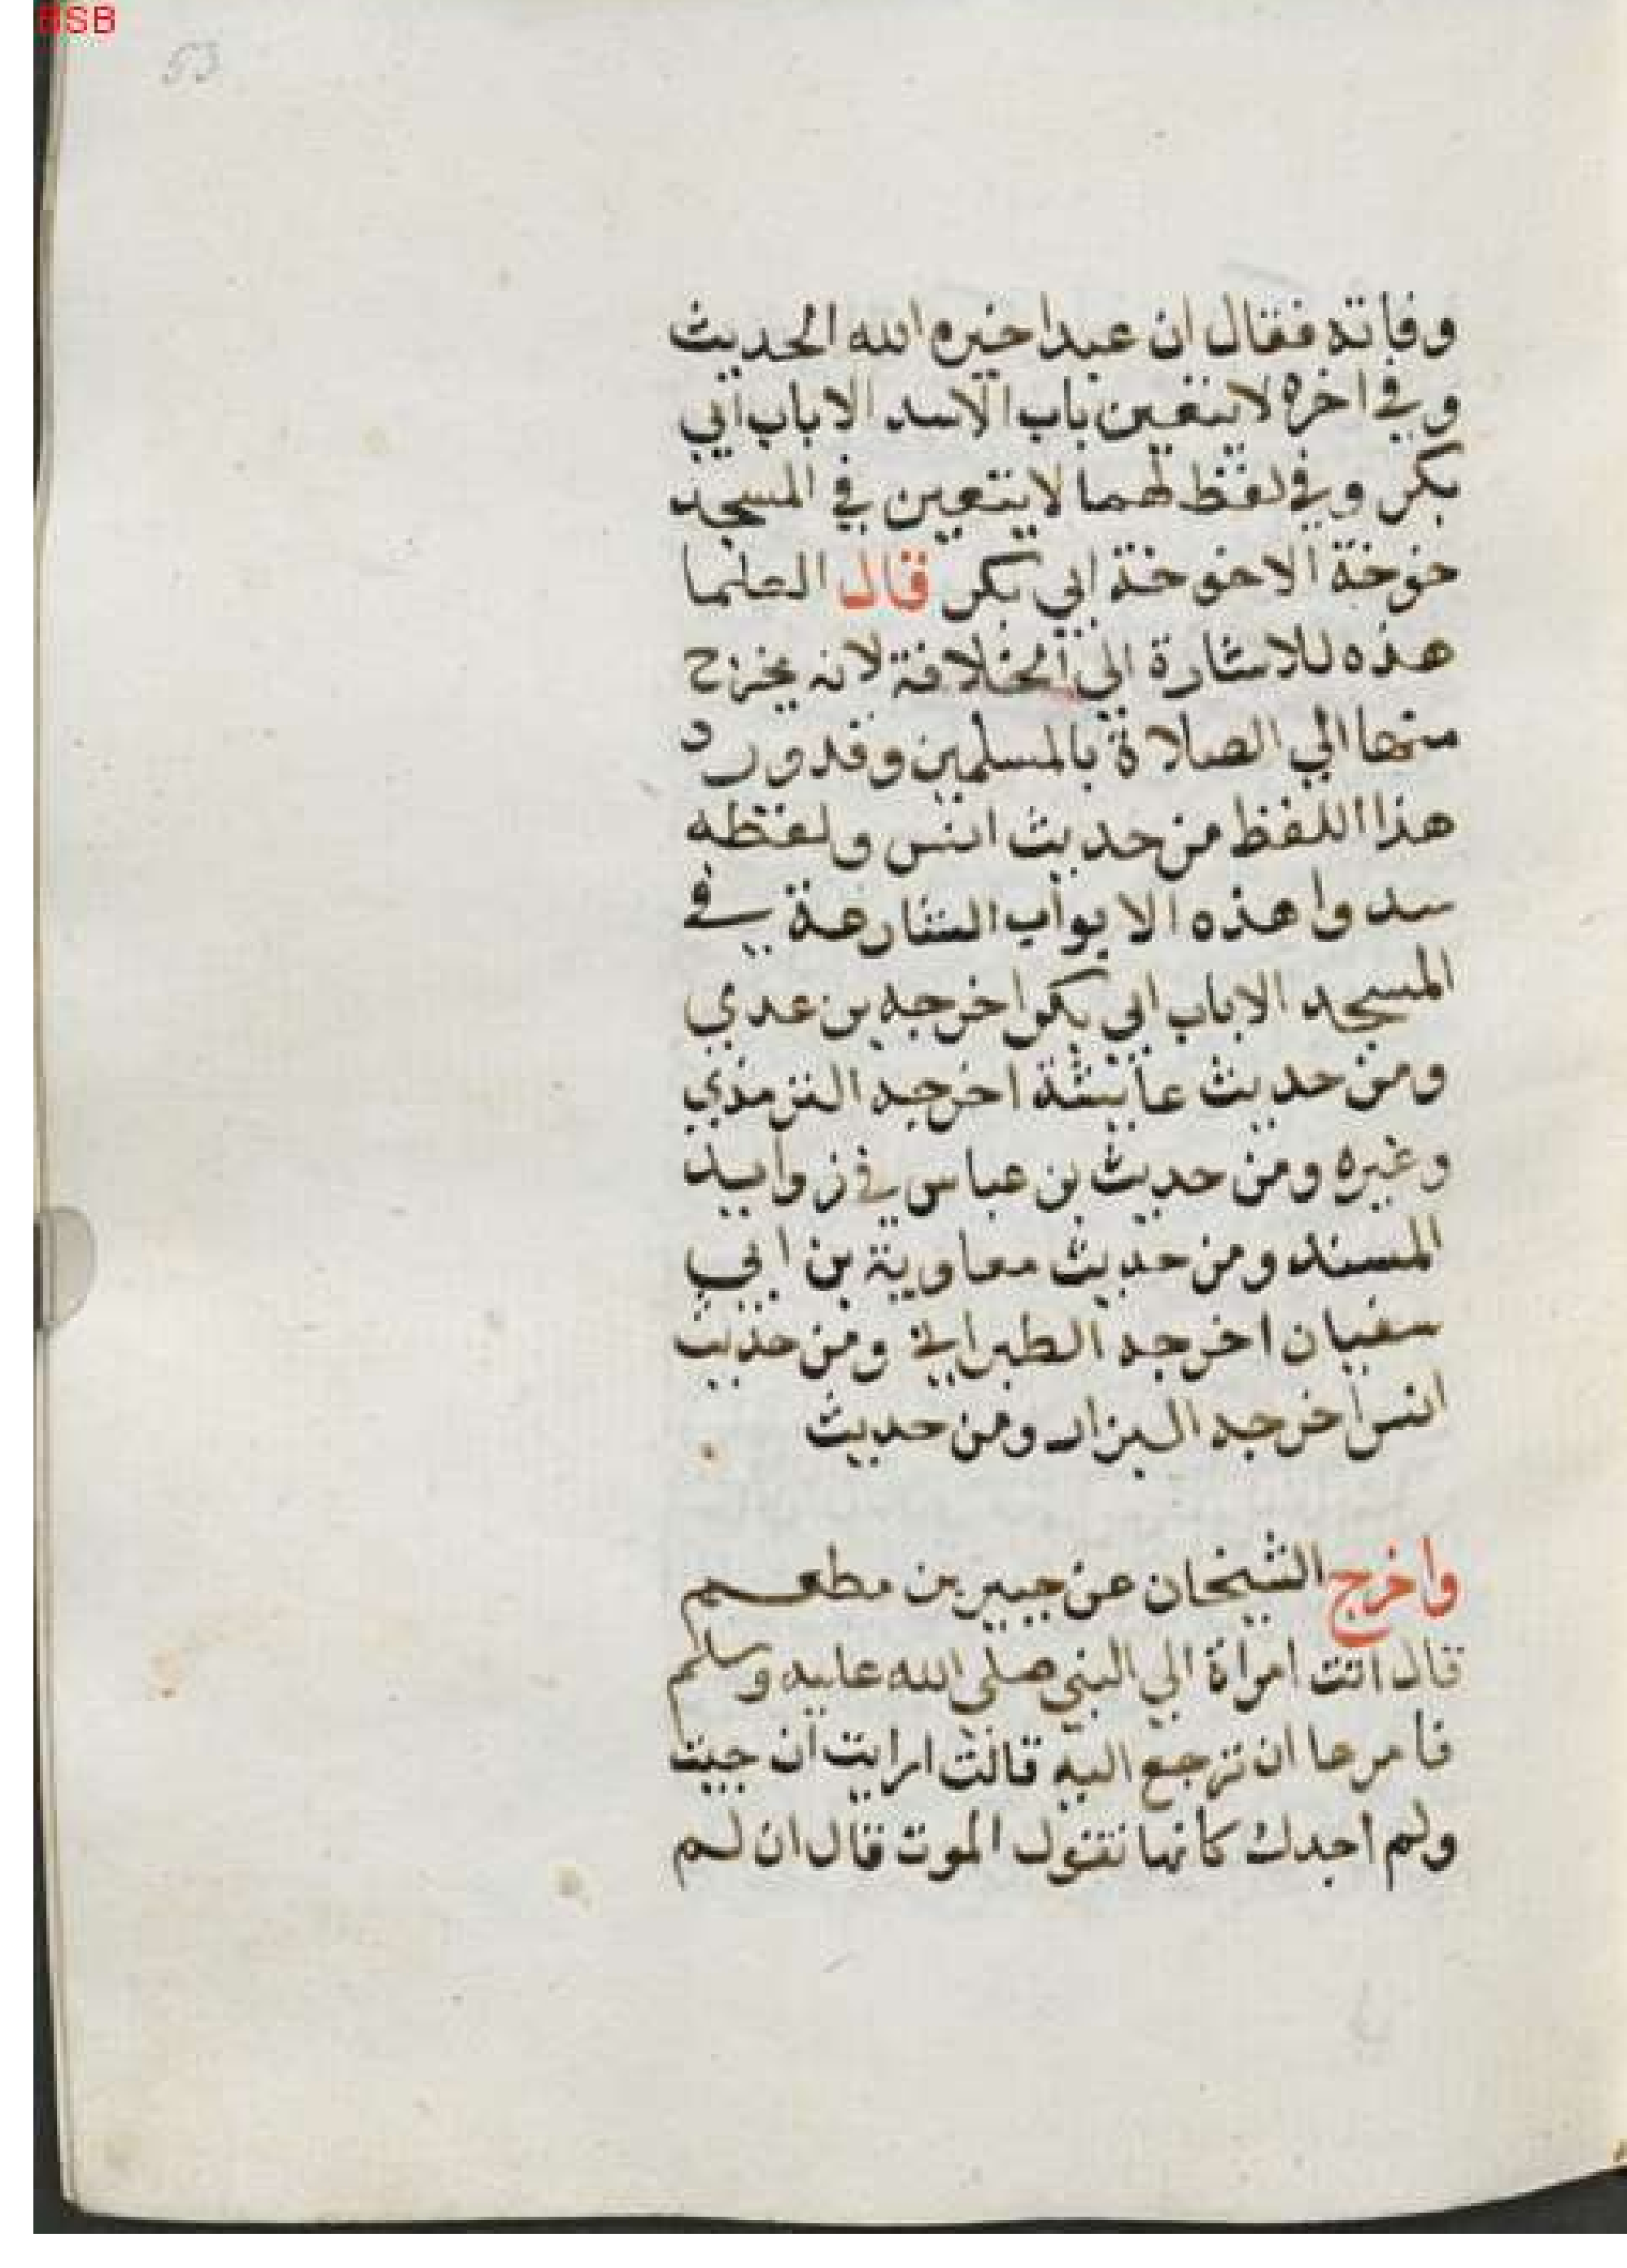 BSB
53
وفاته فقال ان عبدا خيره الله الحديث
وفي اخره لا يبقين باب الا سد الا باب ابي
بكر وفي لفظ لهما لا يبقين في المسجد
خوخة الا خوخة ابي بكر قال العلما
هذه للاشارة الي الخلافة لانه يخرج
منها الي الصلاة بالمسلمين وقد ورد
هذا اللفظ من حديث انس ولفظه
سدوا هذه الابواب الشارعة في
المسجد الا باب ابي بكر اخرجه بن عدي
ومن حديث عايشة اخرجه الترمذي
وغيره ومن حديث بن عباس في زوايد
المسند ومن حديث معاوية بن ابي
سفيان اخرجه الطبراني ومن حديث
انس اخرجه البزار ومن حديث
واخرج الشيخان عن جبير بن مطعم
قال اتت امراة الي النبي صلي الله عليه وسلم
فامرها ان ترجع اليه قالت ارايت ان جيت
ولم اجدك كانها تقول الموت قال ان لم